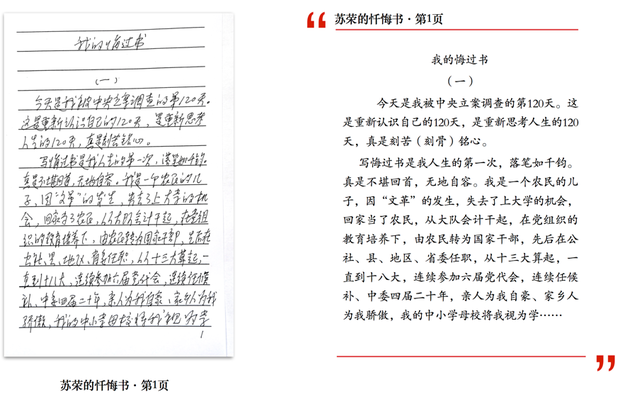 我的悔过书
（一）
今天是我被中央立案调查的第120天。
这是重新认识自己的120天，是重新思考
人生的120天，真是刻苦铭心。
写悔过书是我人生的第一次，落笔如千钧。
真是不堪回首，无地自容。我是一个农民的儿
子，因“文革”的发生，失去了上大学的机
会，回家当了农民，从大队会计干起，在党组
织的教育培养下，由农民转为国家干部，先后在
公社、县、地区、省委任职，从十三大算起，一
直到十八大，连续参加六届党代会，连续任候
补、中委四届二十年，亲人为我自豪、家乡人为我
骄傲，我的中小学母校将我视为学
1
苏荣的忏悔书·第1页
苏荣的忏悔书·第1页
我的悔过书
（一）
今天是我被中央立案调查的第120天。这
是重新认识自己的120天，是重新思考人生的120
天，真是刻苦（刻骨）铭心。
写悔过书是我人生的第一次，落笔如千钧。
真是不堪回首，无地自容。我是一个农民的儿
子，因“文革”的发生，失去了上大学的机会，
回家当了农民，从大队会计干起，在党组织的
教育培养下，由农民转为国家干部，先后在公
社、县、地区、省委任职，从十三大算起，一
直到十八大，连续参加六届党代会，连续任候
补、中委四届二十年，亲人为我自豪、家乡人
为我骄傲，我的中小学母校将我视为学……